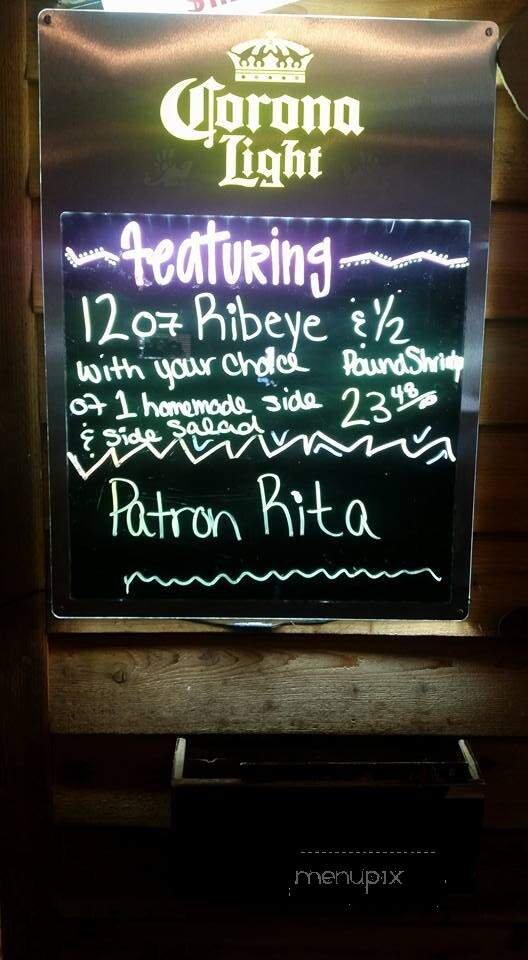 Corona
Light
featuring
12oz Ribeye & 1/2
with your choice Pound Shrimp
of 1 homemade side 23.48
& side salad
Patron Rita
menupix